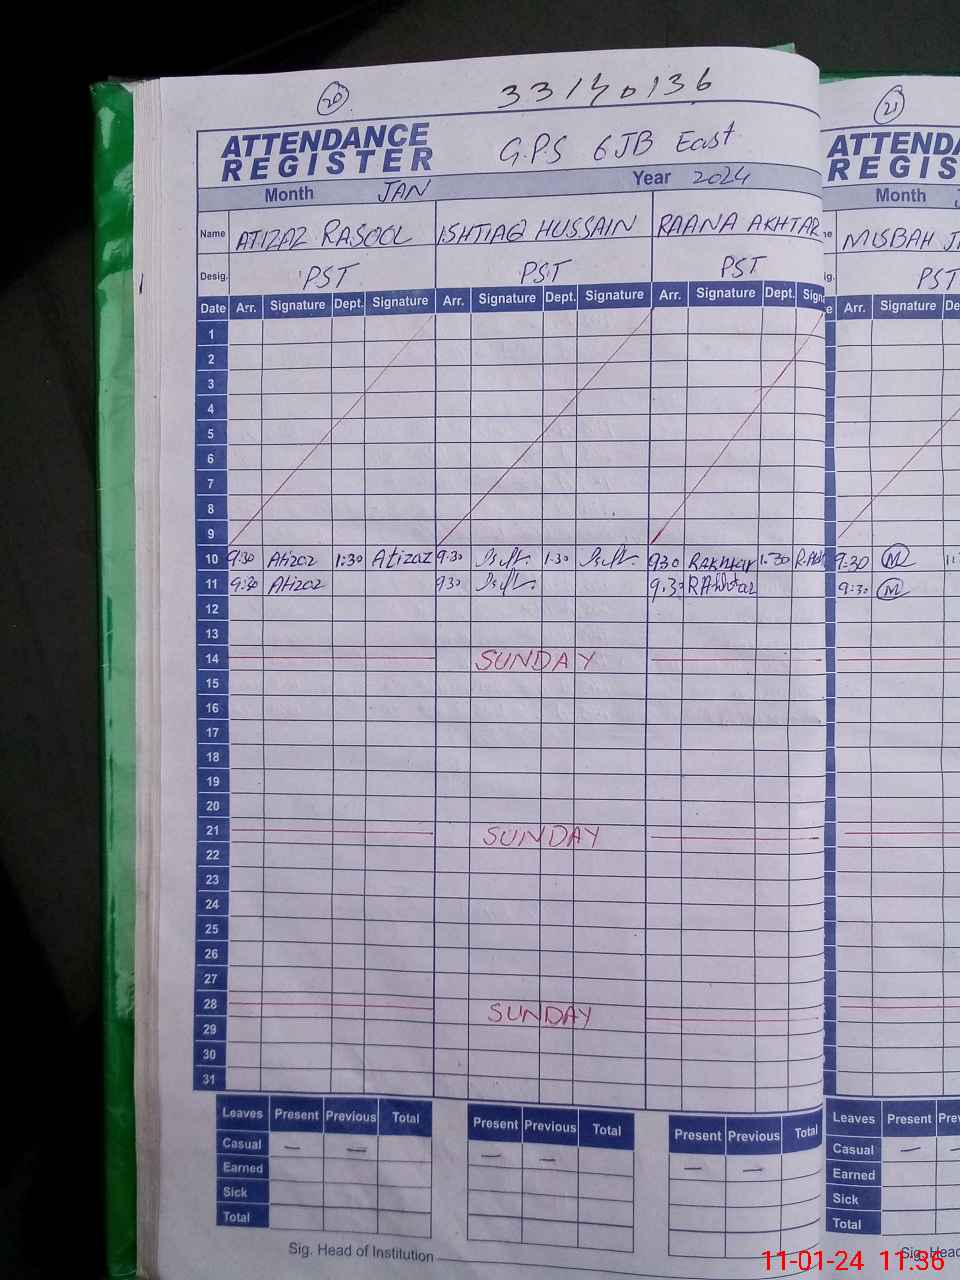 20
33140136
ATTENDANCE REGISTER
G.P.S 6JB East
Month JAN Year 2024
Name ATIZAZ RASOOL ISHTIAQ HUSSAIN RAANA AKHTAR
Desig. PST PST PST
Date Arr. Signature Dept. Signature Arr. Signature Dept. Signature Arr. Signature Dept.
1
2
3
4
5
6
7
8
9
10 9:30 Atizaz 1:30 Atizaz 9:30 1:30 930 RAkhtar 1:30
11 9:30 Atizaz 930 9.30 RAkhtar
12
13
14 SUNDAY
15
16
17
18
19
20
21 SUNDAY
22
23
24
25
26
27
28 SUNDAY
29
30
31
Leaves Present Previous Total Present Previous Total Present Previous Total
Casual — — — — — —
Earned
Sick
Total
Sig. Head of Institution
21
Month
MISBAH
PST
Arr. Signature
9:30 M
9:30 M
Leaves Present
Casual — —
Earned
Sick
Total
11-01-24 11:36